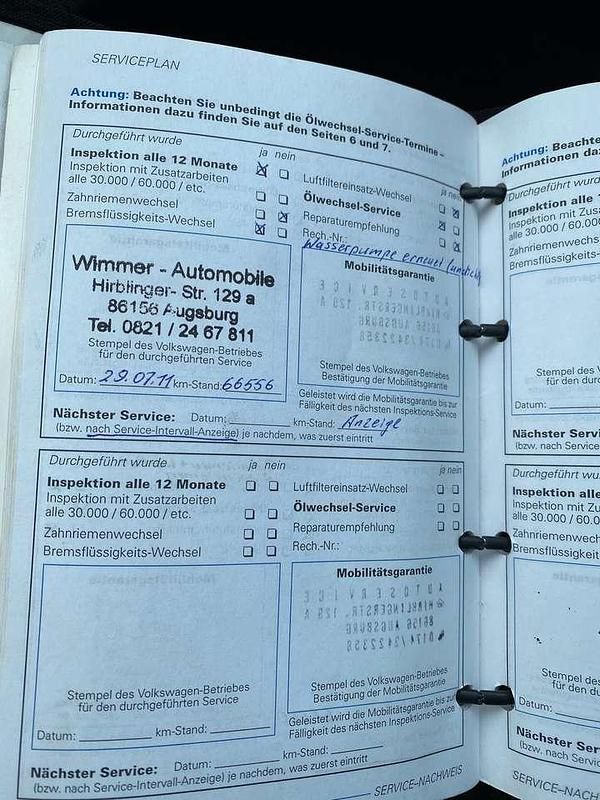 SERVICEPLAN
Achtung: Beachten Sie unbedingt die Ölwechsel-Service-Termine –
Informationen dazu finden Sie auf den Seiten 6 und 7.
Durchgeführt wurde
ja nein
Inspektion alle 12 Monate
Inspektion mit Zusatzarbeiten
alle 30.000 / 60.000 / etc.
Zahnriemenwechsel
Bremsflüssigkeits-Wechsel
ja nein
Luftfiltereinsatz-Wechsel
Ölwechsel-Service
Reparaturempfehlung
Rech.-Nr.:
Wasserpumpe erneuet
Wimmer - Automobile
Hirblinger- Str. 129 a
86156 Augsburg
Tel. 0821 / 24 67 811
Stempel des Volkswagen-Betriebes
für den durchgeführten Service
Datum: 29.07.11 km-Stand: 66556
Mobilitätsgarantie
AUTOSERVICE
HIRBLINGERSTR. 129 A
86156 AUGSBURG
0174/3422358
Stempel des Volkswagen-Betriebes
Bestätigung der Mobilitätsgarantie
Geleistet wird die Mobilitätsgarantie bis zur
Fälligkeit des nächsten Inspektions-Service
Nächster Service: Datum: km-Stand: Anzeige
(bzw. nach Service-Intervall-Anzeige) je nachdem, was zuerst eintritt
Durchgeführt wurde
ja nein
Inspektion alle 12 Monate
Inspektion mit Zusatzarbeiten
alle 30.000 / 60.000 / etc.
Zahnriemenwechsel
Bremsflüssigkeits-Wechsel
ja nein
Luftfiltereinsatz-Wechsel
Ölwechsel-Service
Reparaturempfehlung
Rech.-Nr.:
Stempel des Volkswagen-Betriebes
für den durchgeführten Service
Datum: km-Stand:
Mobilitätsgarantie
AUTOSERVICE
HIRBLINGERSTR. 129 A
86156 AUGSBURG
0174/3422358
Stempel des Volkswagen-Betriebes
Bestätigung der Mobilitätsgarantie
Geleistet wird die Mobilitätsgarantie bis zur
Fälligkeit des nächsten Inspektions-Service
Nächster Service: Datum: km-Stand:
(bzw. nach Service-Intervall-Anzeige) je nachdem, was zuerst eintritt
SERVICE–NACHWEIS
Achtung: Beachte
Informationen daz
Durchgeführt wurde
Inspektion alle 1
Inspektion mit Zusa
alle 30.000 / 60.000
Zahnriemenwechs
Bremsflüssigkeits-
Stempel des V
für den durc
Datum:
Nächster Servi
(bzw. nach Service-
Durchgeführt wu
Inspektion alle
Inspektion mit Zu
alle 30.000 / 60.0
Zahnriemenwech
Bremsflüssigkeit
Stempel des
für den du
Datum:
Nächster Ser
(bzw. nach Servic
SERVICE–NACH